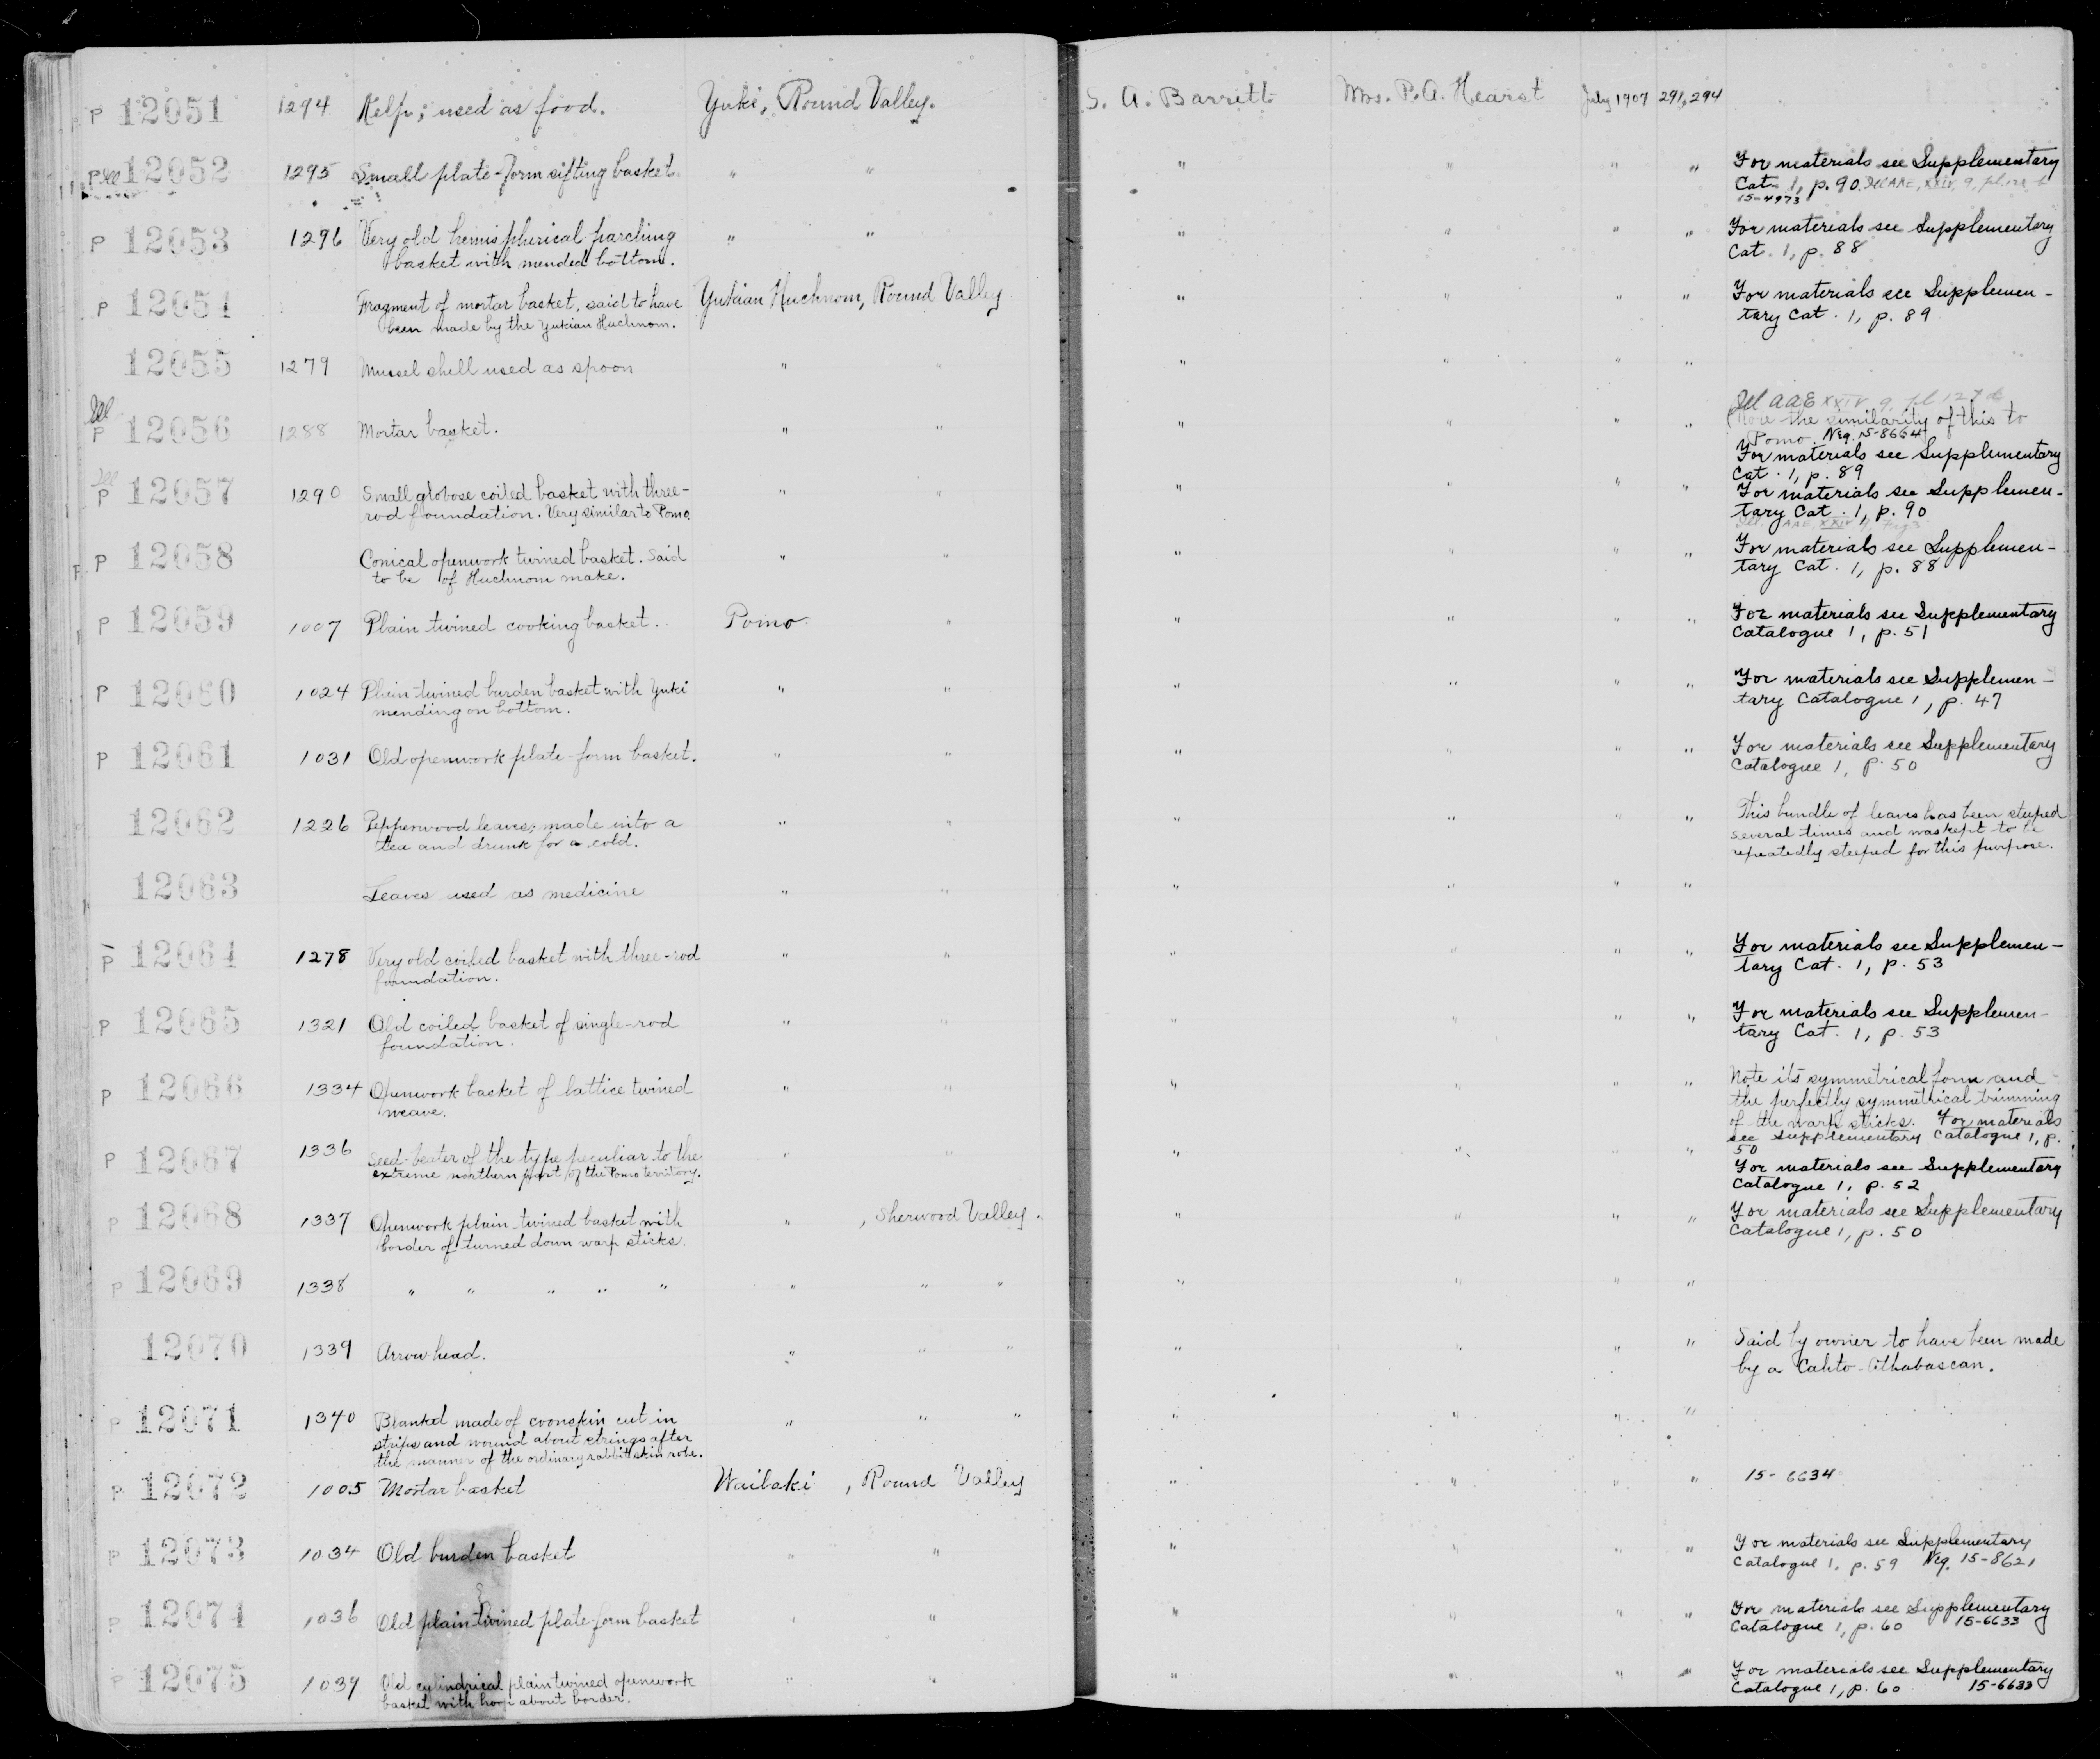 P 12051 1294 Kelp; used as food. Yuki, Round Valley. S. A. Barrett Mrs. P. A. Hearst July 1907 291, 294
P Ill 12052 1295 Small plate-form sifting basket. " " " " " " For materials see Supplementary
Cat. 1, p. 90. Ill AAE, XXIV, 9, pl.
15-4973
P 12053 1296 Very old hemispherical parching " " " " " " For materials see Supplementary
basket with mended bottom. Cat. 1, p. 88
P 12054 Fragment of mortar basket, said to have Yukian Huchnom, Round Valley " " " For materials see Supplemen-
been made by the Yukian Huchnom. tary Cat. 1, p. 89
12055 1279 Mussel shell used as spoon " " " " " "
Ill Ill AAE XXIV 9, pl 127 d
P 12056 1288 Mortar basket. " " " " " " (Note the similarity of this to
Pomo. Neg. 15-8664
For materials see Supplementary
Cat. 1, p. 89
Ill
P 12057 1290 Small globose coiled basket with three- " " " " " " For materials see Supplemen-
rod foundation. Very similar to Pomo. tary Cat. 1, p. 90
Ill. AAE, XXIV
P 12058 Conical openwork twined basket. Said " " " " " " For materials see Supplemen-
to be of Huchnom make. tary Cat. 1, p. 88
P 12059 1007 Plain twined cooking basket. Pomo " " " " " For materials see Supplementary
Catalogue 1, p. 51
P 12060 1024 Plain twined burden basket with Yuki " " " " " " For materials see Supplemen-
mending on bottom. tary Catalogue 1, p. 47
P 12061 1031 Old openwork plate-form basket. " " " " " " For materials see Supplementary
Catalogue 1, p. 50
12062 1226 Pepperwood leaves; made into a " " " " " " This bundle of leaves has been steeped
tea and drunk for a cold. several times and was kept to be
repeatedly steeped for this purpose.
12063 Leaves used as medicine " " " " " "
P 12064 1278 Very old coiled basket with three-rod " " " " " For materials see Supplemen-
foundation. tary Cat. 1, p. 53
P 12065 1321 Old coiled basket of single-rod " " " " " " For materials see Supplemen-
foundation. tary Cat. 1, p. 53
P 12066 1334 Openwork basket of lattice twined " " " " " " Note its symmetrical form and
weave. the perfectly symmetrical trimming
of the warp sticks. For materials
see Supplementary Catalogue 1, p.
50
P 12067 1336 Seed-beater of the type peculiar to the " " " " " " For materials see Supplementary
extreme northern part of the Pomo territory. Catalogue 1, p. 52
P 12068 1337 Openwork plain twined basket with " , Sherwood Valley. " " " " For materials see Supplementary
border of turned down warp sticks. Catalogue 1, p. 50
P 12069 1338 " " " " " " " " " " " "
12070 1339 Arrowhead. " " " " " " " Said by owner to have been made
by a Cahto-Athabascan.
P 12071 1340 Blanket made of coonskin cut in " " " " " " "
strips and wound about strings after
the manner of the ordinary rabbitskin robe.
P 12072 1005 Mortar basket Wailaki , Round Valley " " " " 15-6634
P 12073 1034 Old burden basket " " " " " " For materials see Supplementary
Catalogue 1, p. 59 Neg. 15-8621
P 12074 1036 Old plain twined plate-form basket " " " " " " For materials see Supplementary
Catalogue 1, p. 60 15-6633
P 12075 1039 Old cylindrical plain twined openwork " " " " " " For materials see Supplementary
basket with hoop about border. Catalogue 1, p. 60 15-6633